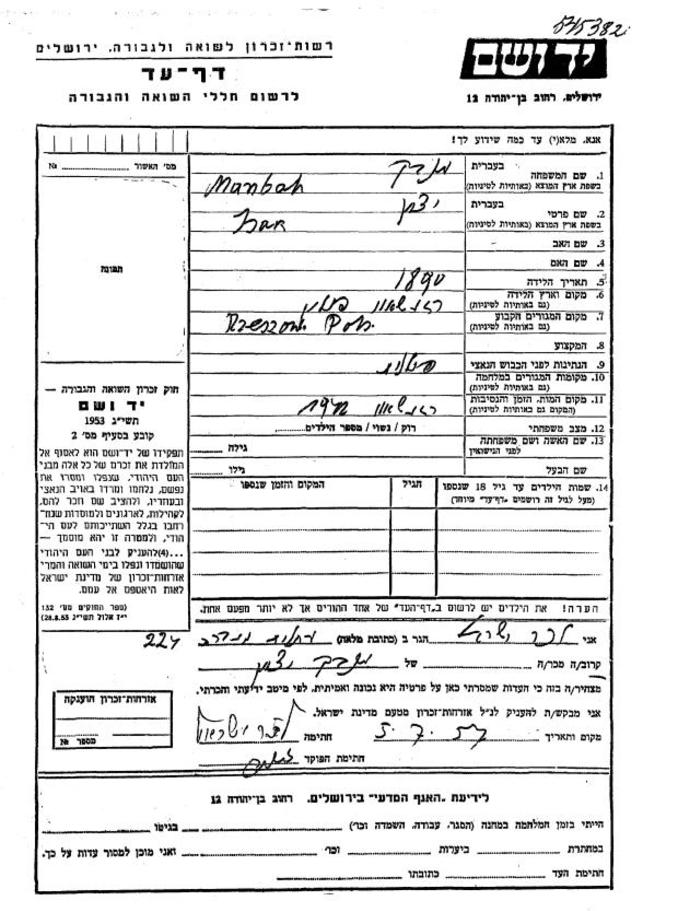 545382
רשות־זכרון לשואה ולגבורה, ירושלים
דף־עד
לרשום חללי השואה והגבורה
יד ושם
ירושלים, רחוב בן־יהודה 12
אנא, מלא(י) עד כמה שידוע לך!
מס׳ האשור № 
תמונה
1. שם המשפחה בעברית
בשפת ארץ המוצא (באותיות לטיניות) Manbah
2. שם פרטי בעברית
בשפת ארץ המוצא (באותיות לטיניות)
3. שם האב
4. שם האם
5. תאריך הלידה 1890
6. מקום וארץ הלידה
(גם באותיות לטיניות)
7. מקום המגורים הקבוע Rzeszow Pols.
(גם באותיות לטיניות)
8. המקצוע
9. הנתינות לפני הכבוש הנאצי
10. מקומות המגורים במלחמה
(גם באותיות לטיניות)
11. מקום המות, הזמן והנסיבות 1942
(המקום גם באותיות לטיניות)
12. מצב משפחתי רווק / נשוי / מספר הילדים
13. שם האשה ושם משפחתה גילה
לפני הנישואין
שם הבעל גילו
14. שמות הילדים עד גיל 18 שנספו הגיל המקום והזמן שנספו
(מעל לגיל זה רושמים "דף־עד" מיוחד)
חוק זכרון השואה והגבורה —
יד ושם
תשי״ג 1953
קובע בסעיף מס׳ 2
תפקידו של יד־ושם הוא לאסוף אל
המולדת את זכרם של כל אלה מבני
העם היהודי, שנפלו ומסרו את
נפשם, נלחמו ומרדו באויב הנאצי
ובעוזריו, ולהציב שם וזכר להם,
לקהילות, לארגונים ולמוסדות שנח־
רבו בגלל השתייכותם לעם הי־
הודי, ולמטרה זו יהא מוסמך —
...(4)להעניק לבני העם היהודי
שהושמדו ונפלו בימי השואה והמרי
אזרחות־זכרון של מדינת ישראל
לאות היאספם אל עמם.
(ספר החוקים מס׳ 132
י״ז אלול תשי״ג 28.8.53)
הערה! את הילדים יש לרשום ב"דף־העד" של אחד ההורים אך לא יותר מפעם אחת.
אני הגר ב (כתובת מלאה) 224
קרוב/ה מכר/ה של
מצהיר/ה בזה כי העדות שמסרתי כאן על פרטיה היא נכונה ואמיתית, לפי מיטב ידיעתי והכרתי.
אני מבקש/ת להעניק לנ״ל אזרחות־זכרון מטעם מדינת ישראל.
מקום ותאריך חתימה
חתימת הפוקד
אזרחות־זכרון הוענקה
מספר №
לידיעת "האגף המדעי" בירושלים, רחוב בן־יהודה 12
הייתי בזמן המלחמה במחנה (הסגר, עבודה, השמדה וכו׳) בגיטו
במחתרת ביערות וכו׳ ואני מוכן למסור עדות על כך.
חתימת העד כתובתו